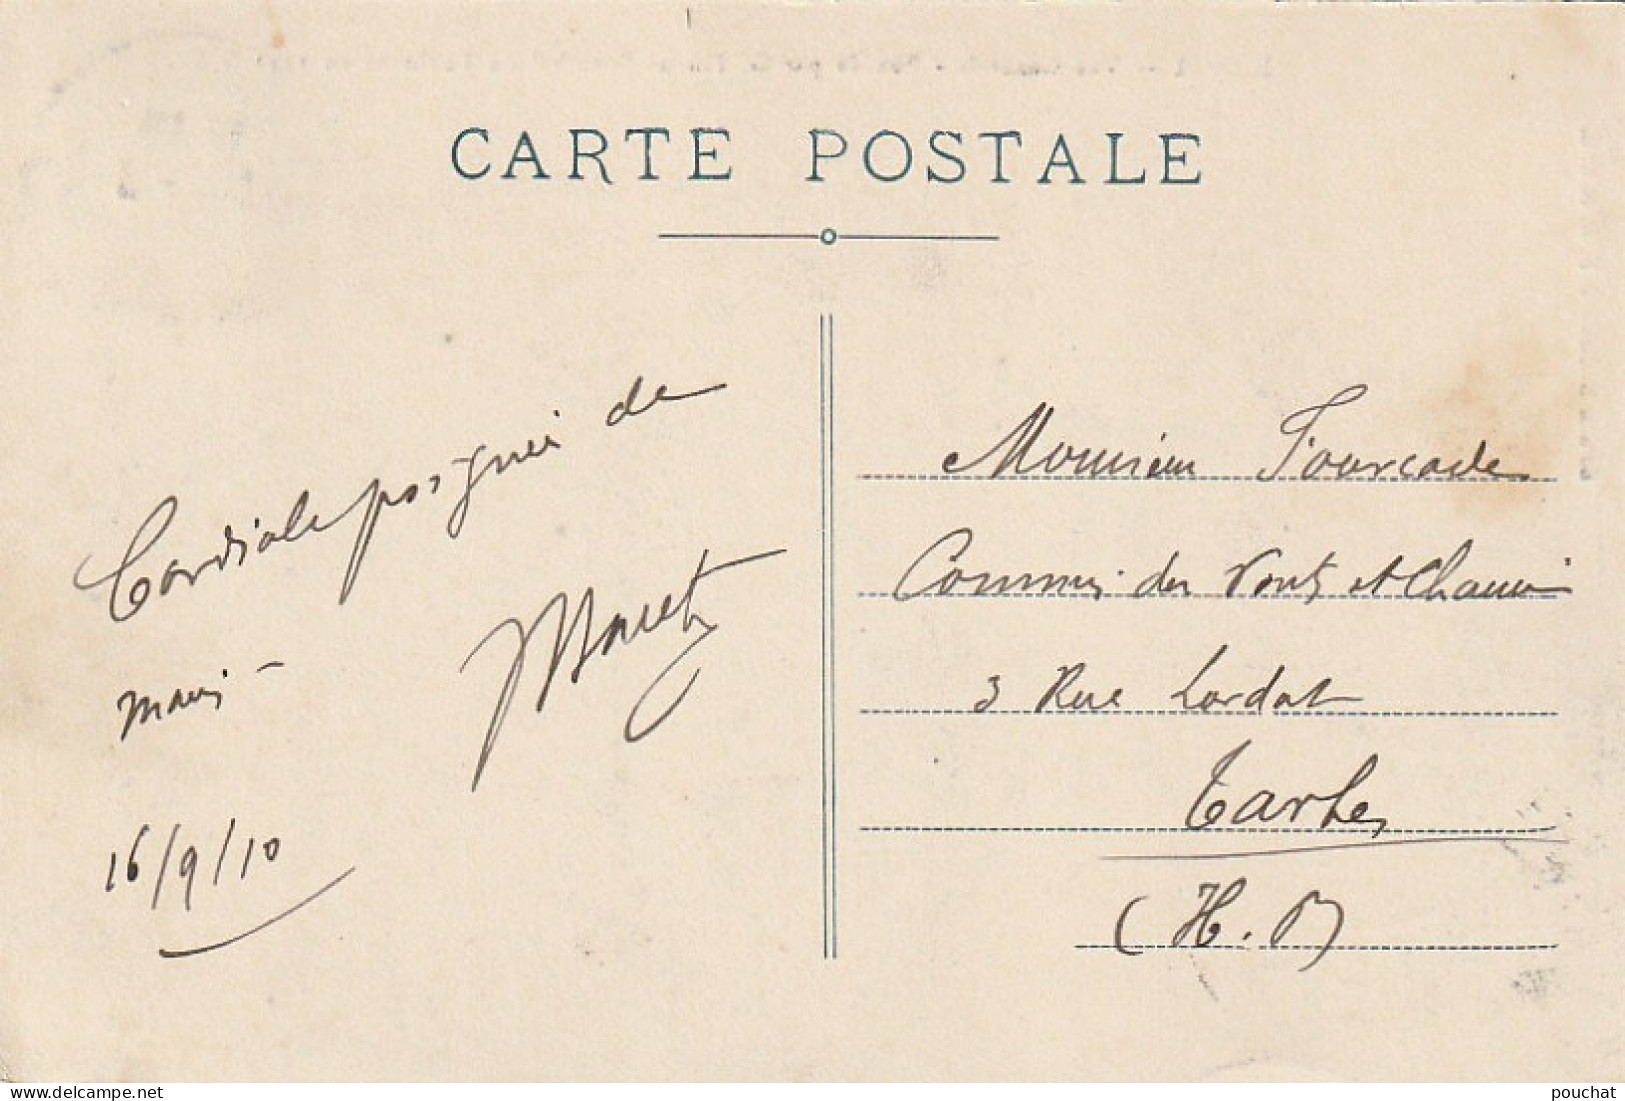 CARTE POSTALE
Cordiale poignée de
main -
16/9/10
Monsieur Fourcade
Commis des Ponts et Chaussé
3 Rue Lordat
Tarbes
(H. P)
pouchat